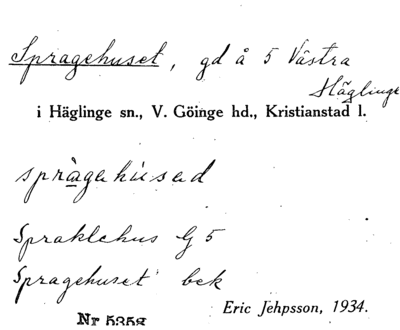 Spragehuset, gd å 5 Västra
Häglinge
i Häglinge sn., V. Göinge hd., Kristianstad l.
spràgahúsad
Spraklehus G 5
Spragehuset bek
Eric Jehpsson, 1934.
Nr 5358